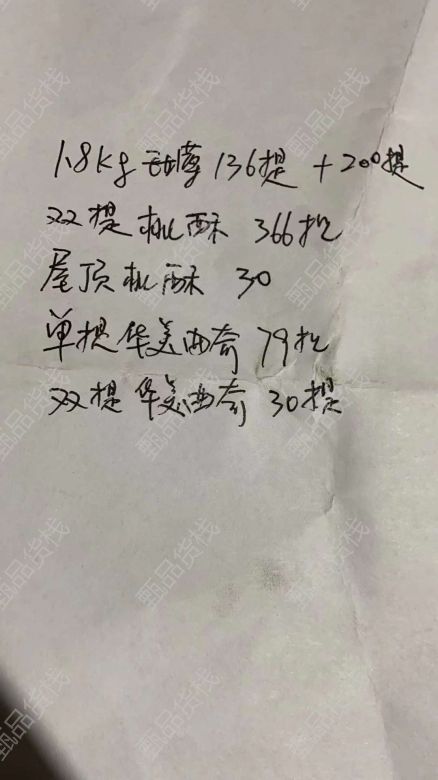 1.8kg 136提 + 200提
双提桃酥 366提
屋顶桃酥 30
单提华美西奇 79提
双提华美西奇 30提
甄品货栈